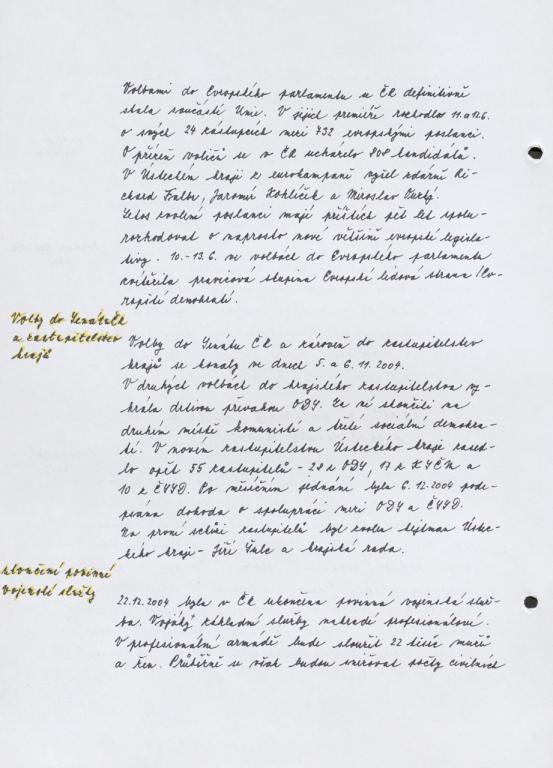 Volbami do Evropského parlamentu se ČR definitivně
stala součástí Unie. V jejich premiéře rozhodlo 11. a 12.6.
o svých 24 zástupcích mezi 732 evropskými poslanci.
O přízeň voličů se v ČR ucházelo 808 kandidátů.
V Ústeckém kraji z eurokampaně vyšel zdárně Ri-
chard Falbr, Jaromír Kohlíček a Miroslav
Letos zvolení poslanci mají příštích pět let spolu-
rozhodovat o naprosto nové většině evropské legisla-
tivy. 10.-13.6. ve volbách do Evropského parlamentu
zvítězila pravicová skupina Evropské lidová strana /Ev-
ropští demokraté.
Volby do Senátu ČR
a zastupitelstev
krajů
Volby do Senátu ČR a zároveň do zastupitelstev
krajů se konaly ve dnech 5. a 6.11.2004.
V druhých volbách do krajského zastupitelstva vy-
hrála drtivou převahou ODS. Za ní skončili na
druhém místě komunisté a třetí sociální demokra-
té. V novém zastupitelstvu Ústeckého kraje zased-
lo opět 55 zastupitelů - 28 z ODS, 17 z KSČM a
10 z ČSSD. Po měsíčním jednání byla 6.12.2004 pode-
psána dohoda o spolupráci mezi ODS a ČSSD.
Na první schůzi zastupitelů byl zvolen hejtman Ústec-
kého kraje - Jiří Šulc a krajská rada.
Ukončení povinné
vojenské služby
22.12.2004 byla v ČR ukončena povinná vojenská služ-
ba. Vojáky základní služby nahradí profesionálové.
V profesionální armádě bude sloužit 22 tisíc mužů
a žen. Průběžně se však budou snižovat počty civilních